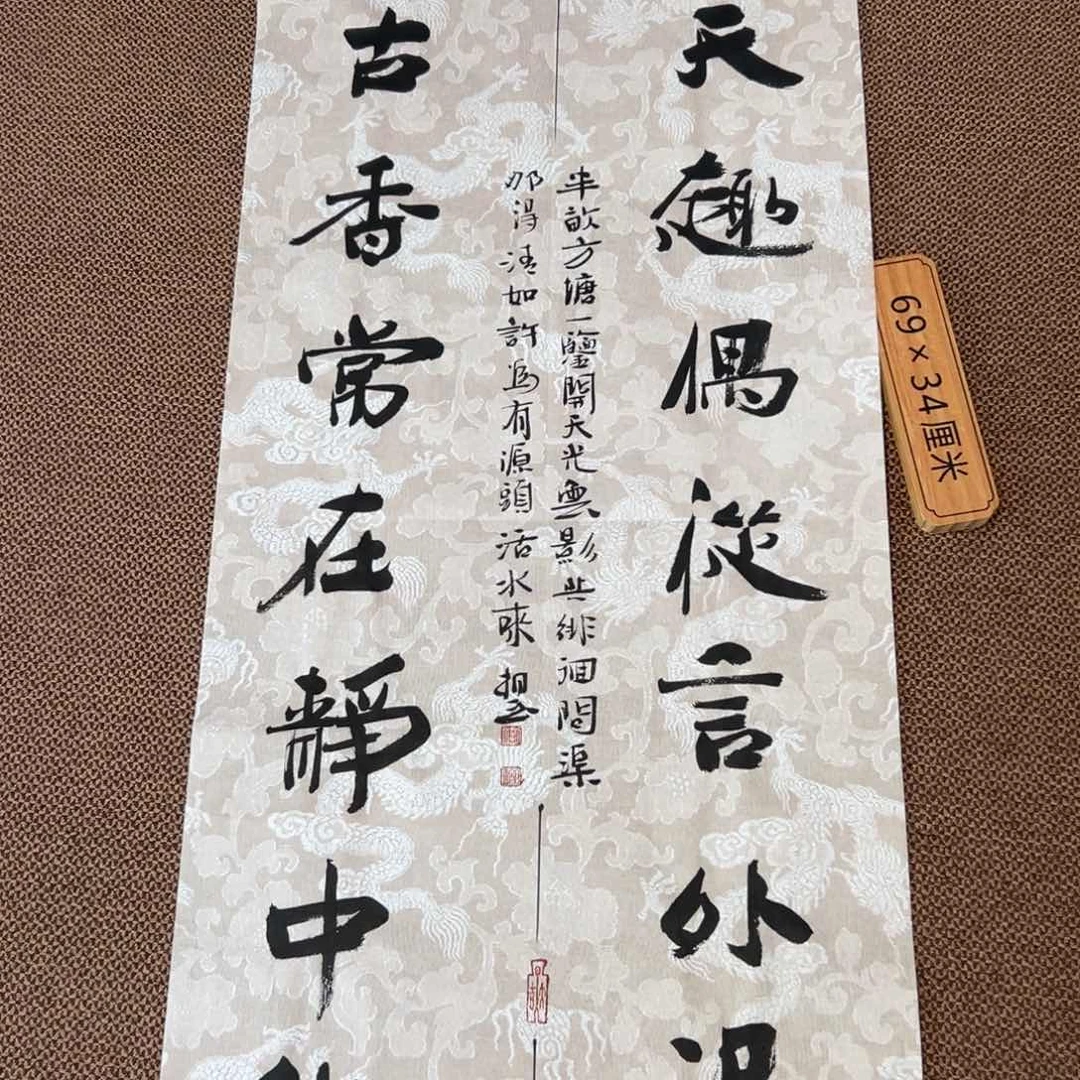 天趣偶從言外
半畝方塘一鑑開天光雲影共徘徊問渠
那得清如許為有源頭活水來
古香常在靜中
69×34厘米